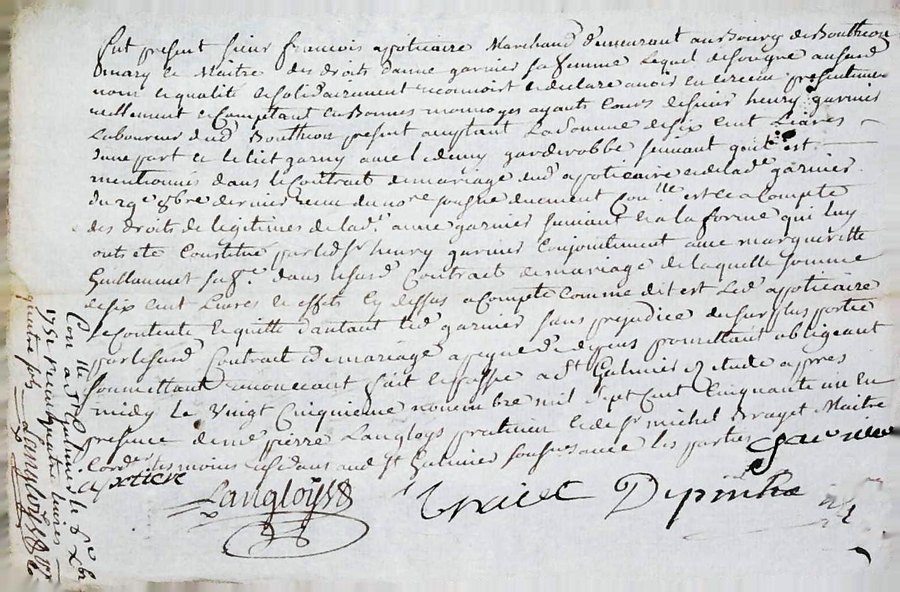 fut present sieur francois apoticaire Marchand demeurant au Bourg de Bouthéon
mary et Maitre des droits danne garnier sa femme lequel de son gré aususd
nom et qualité et solidairement reconnoit et declare avoir eu et receu presentemen
reellement et Comptant en Bonnes monnoyes ayants Cours de sieur henry garnier
Laboureur dud Bouthéon present acceptant La Somme de six cent Livres
dune part et le lict garny avec le demy garderobbe suivant quil est
mentionné dans le Contrat de mariage dud apoticaire et de lade garnier
du 29e 8bre dernier receu du nore sousigné duement Conllé est ce a Compte
des droits de legitimes de lade anne garnier suivant et a la forme qui luy
ont eté Constitué par led sr henry garnier Conjointement avec margueritte
Guillaumet sa fe dans le susd Contrat de mariage de laquelle somme
de six cent Livres et effets cy dessus a Compte Comme dit est led apoticaire
se Contente et quitte dautant led garnier sans prejudice du surplus porté
par le susd Contrat de mariage a peyne de depens promettant obligeant
soumettant renonceant fait et passé a st Galmier etude apres
midy Le Vingt Cinquieme novembre mil sept Cent Cinquante un En
presence de me pierre Langloys praticien et de sr michel Maitre
Cord tesmoins residans aud st Galmier sousignes avec les parties
garnier
apotiere
Langloys
Depinha
Con llé a st Galmier le 6e xbre
1751 receu quatre livres
quatre sols Langloys